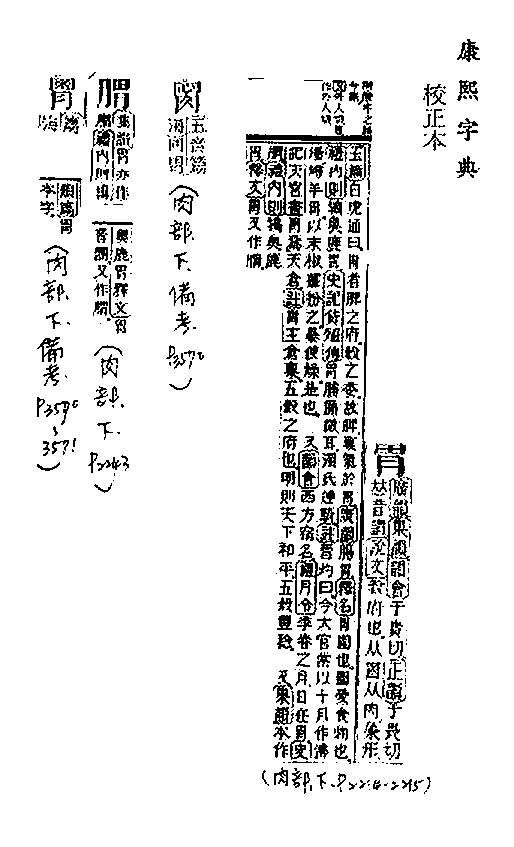 康熙字典
校正本
胃
廣韻集韻韻會于貴切正韻于畏切
𠀤音謂說文穀府也从囟从肉象形
玉篇白虎通曰胃者脾之府穀之委故脾稟氣於胃廣韻腸胃釋名胃圍也圍受食物也
禮內則鴇奧鹿胃史記貨殖傳胃脯簡微耳濁氏連騎註晉灼曰今太官常以十月作沸
湯燖羊胃以末椒薑粉之暴使燥是也 又韻會西方宿名禮月令季春之月日在胃史
記天官書胃爲天倉註胃主倉稟五穀之府也明則天下和平五穀豐稔 又集韻本作
䐔禮內則鴇奧鹿
胃釋文胃又作䐔
(肉部.下.P.2214-2215)
玉音篇
(肉部.下.備考.P.3570)
謂
集韻胃亦作
䐔禮內則鴇
奧鹿胃釋文胃
音謂又作䐔
(肉部.下.P.2243)
篇海
類篇胃
本字
(肉部.下.備考.P.3570~3571)